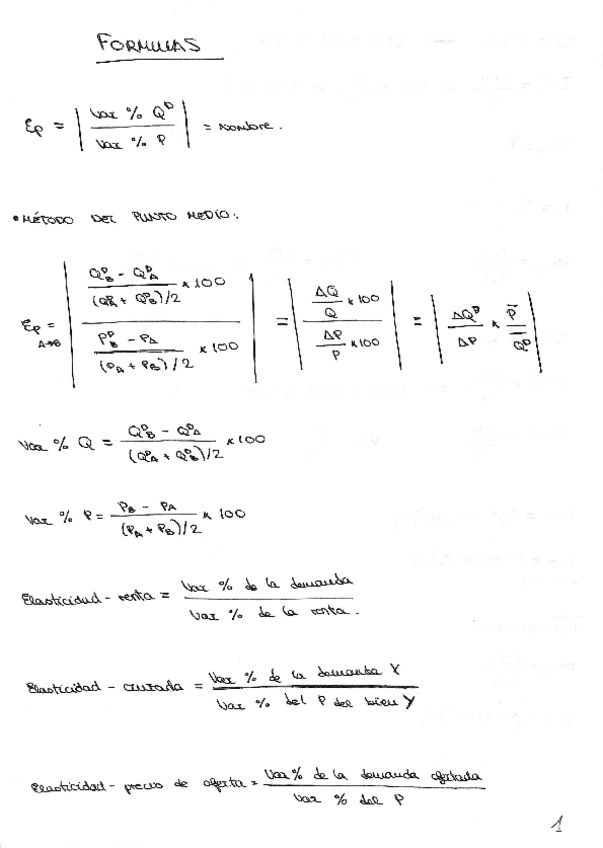 FORMULAS
Ep = | Var % Q^D / Var % P | = nombre.
• MÉTODO DEL PUNTO MEDIO:
Ep A→B = | ((Q^D_B - Q^D_A) / ((Q^D_A + Q^D_B)/2) × 100) / ((P^D_B - P_A) / ((P_A + P_B)/2) × 100) | = | (ΔQ / Q × 100) / (ΔP / P × 100) | = | ΔQ^D / ΔP × P̄ / Q̄^D |
Var % Q = (Q^D_B - Q^D_A) / ((Q^D_A + Q^D_B)/2) × 100
Var % P = (P_B - P_A) / ((P_A + P_B)/2) × 100
Elasticidad - renta = Var % de la demanda / Var % de la renta.
Elasticidad - cruzada = Var % de la demanda X / Var % del P del bien Y
Elasticidad - precio de oferta = Var % de la demanda ofertada / Var % del P
1